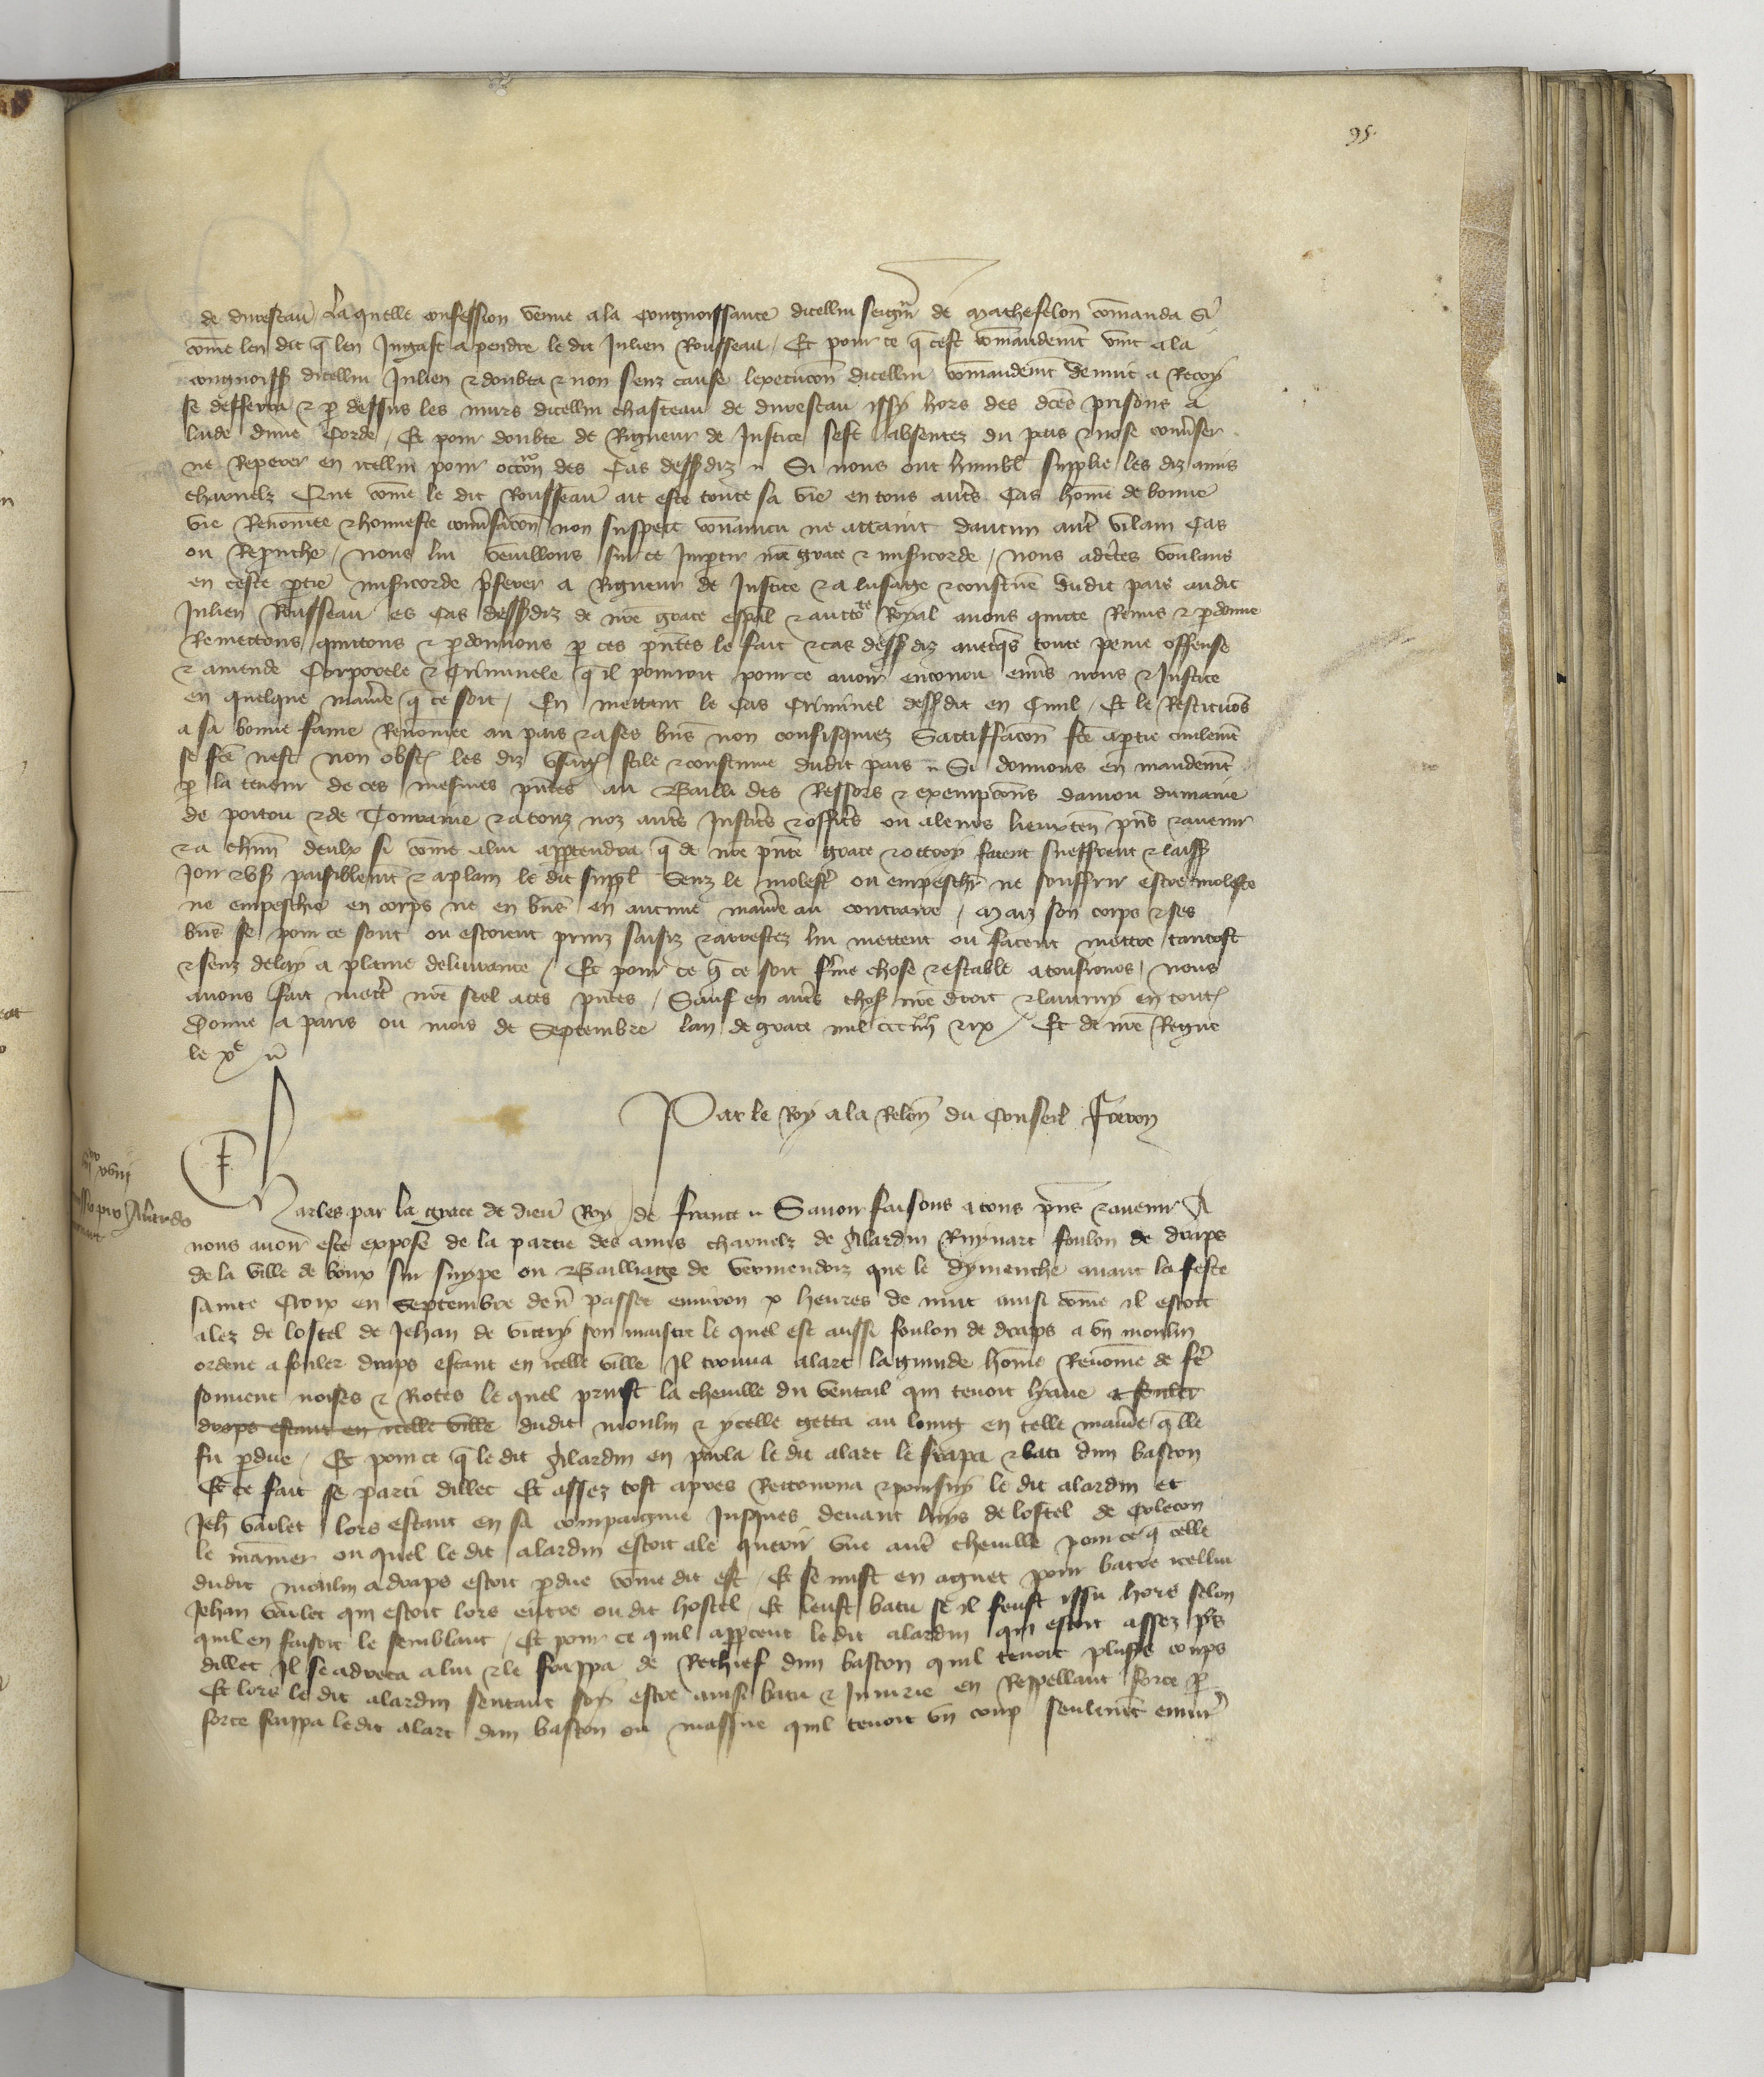 95.
de durestau La quelle confession venue a la congnoissance dicellui seign̄r de Mathefelon cōmanda Si
cōme len dit q̄ len Jugast a pendre le dit Julien Rousseau / Et pour ce q̄ cest cōmandemt̄ vint a la
congnoiss̄ dicellui Julien & doubta & non senz cause lexecucōn dicellui cōmandemt̄ de nuit a Recoy
se defferra & p̄ dessus les murs dicellui chasteau de durestau yssy hors des dc̄es prisons a
laide dune Corde / Et pour doubte de Rigueur de Justice sest absentez du pais & nose conv̄ser
ne Reperer en icellui pour occōn des Cas dess̄ diz ~ Si nous ont humbl̄ supplie les diz amis
charnelz Que cōme le dit Rousseau ait este toute sa vie en tous aut̄s Cas hōme de bonne
vie Renōmee & honneste conv̄sacōn non suspect convaincu ne attaint daucun aut̄ vilain Cas
ou Repruche / nous lui vueillons sur ce Imp̄tir nr̄e grace & misicorde / nous adc̄tes voulans
en ceste p̄tie misicorde p̄ferer a Rigueur de Justice & a lusage & coustume dudit pais audit
Julien Rousseau es Cas dess̄diz de nr̄e grace esp̄al & auctote Royal auons quicte Remis & p̄donne
Remectons quictons & p̄donnons p̄ ces pn̄tes le fait & cas dess̄ diz auecq̄s toute peine offense
& amende Corporele & Criminele q̄ il pourroit pour ce auoir encouru enūs nous & Justice
en quelque manie᷑ q̄ ce soit / En mettant le Cas Criminel dess̄ dit en Ciuil / Et le Restituōs
a sa bonne fame Renōmee au pais & a ses bn̄s non confisquiez Sattiffacōn fc̄e a p̄tie ciuilemt̄
se fc̄e nest non obst̄ les diz vsaǵ stile & coustume dudit pais ~ Si donnons en mandemt̄
p̄ la teneur de ces mesmes pn̄tes au Bailli des Ressors & exempcōns danjou du maine
de poitou & de Touraine & a touz noz aut̄s Justic̄s & offic̄s ou a leurs lieuxten̄ pn̄s & auenir
& a chūn deulx si cōme a lui app̄tendra q̄ de nr̄e pn̄te grace & ottroy facent sueffrent & laiss̄
Joir & vs̄ paisiblemt̄ & a plain le dit suppl̄ Senz le molest̄ ou empesch̄r ne souffrir estre moleste
ne empeschie en corps ne en bn̄s en aucune manie᷑ au contraire / Maiz son corps & ses
bn̄s se pour ce sont ou estoient prins saisiz & arrestez lui mettent ou facent mettre tantost
& senz delay a plaine deliurance / Et pour ce q̄ ce soit fr̄me chose & estable a tousiours / nous
auons fait mett̄ nr̄e seel a ces pn̄tes / Sauf en aut̄s chos̄ nr̄e droit & lautruy en tout̄
Donne a paris ou mois de Septembre lan de grace mil ccc iiiixx & ix / Et de nr̄e Regne
le xe ~
Par le Roy a la Relōn du Conseil Freron
iiiixx xviij
Alardo
Charles par la grace de dieu Roy de france ~ Sauoir faisons a tous pn̄s & auenir A
nous auoir este expose de la partie des amis charnelz de Alardin Ruynart foulon de draps
de la ville de boux sur suype ou Bailliage de vermendoiz que le dymenche auant la feste
sainte Croix en septembre den̄ passee enuiron x heures de nuit ainsi cōme il estoit
alez de lostel de Jehan de vitry son maistre le quel est aussi foulon de draps a vn moulin
ordene a fouler draps estant en icelle ville Il trouua alart laguiude hōme Renōme de fē
souuent noises & Riotes le quel prinst la cheuille du ventail qui tenoit lyaue a fouler
draps estant en icelle ville dudit moulin & ycelle getta au loing en telle manie᷑ q̄lle
fu p̄due / Et pour ce q̄ le dit Alardin en parla le dit alart le frapa & bati dun baston
Et ce fait se parti dillec Et assez tost apres Retourna & poursuy le dit alardin et
Jeh̄ vaulet lors estant en sa compaignie Jusques deuant luys de lostel de Colecon
le mamier ou quel le dit alardin estoit ale querir vne aut̄ cheuille pour ce q̄ celle
dudit moulin a draps estoit p̄due cōme dit est / Et se mist en aguet pour batre icellui
Jehan vaulet qui estoit lors entre ou dit hostel / Et leust batu se il feust issu hors selon
quil en faisoit le semblant / Et pour ce quil app̄ceut le dit alardin qui estoit assez p̄s
dillec Il se adreca a lui & le frappa de Rechief dun baston quil tenoit plus̄s coups
Et lors le dit alardin sentant soy estre ainsi batu & Iniurie en Reppellant force p̄
force frappa ledit alart dun baston ou massue quil tenoit vn coup seulemt̄ enuir̄